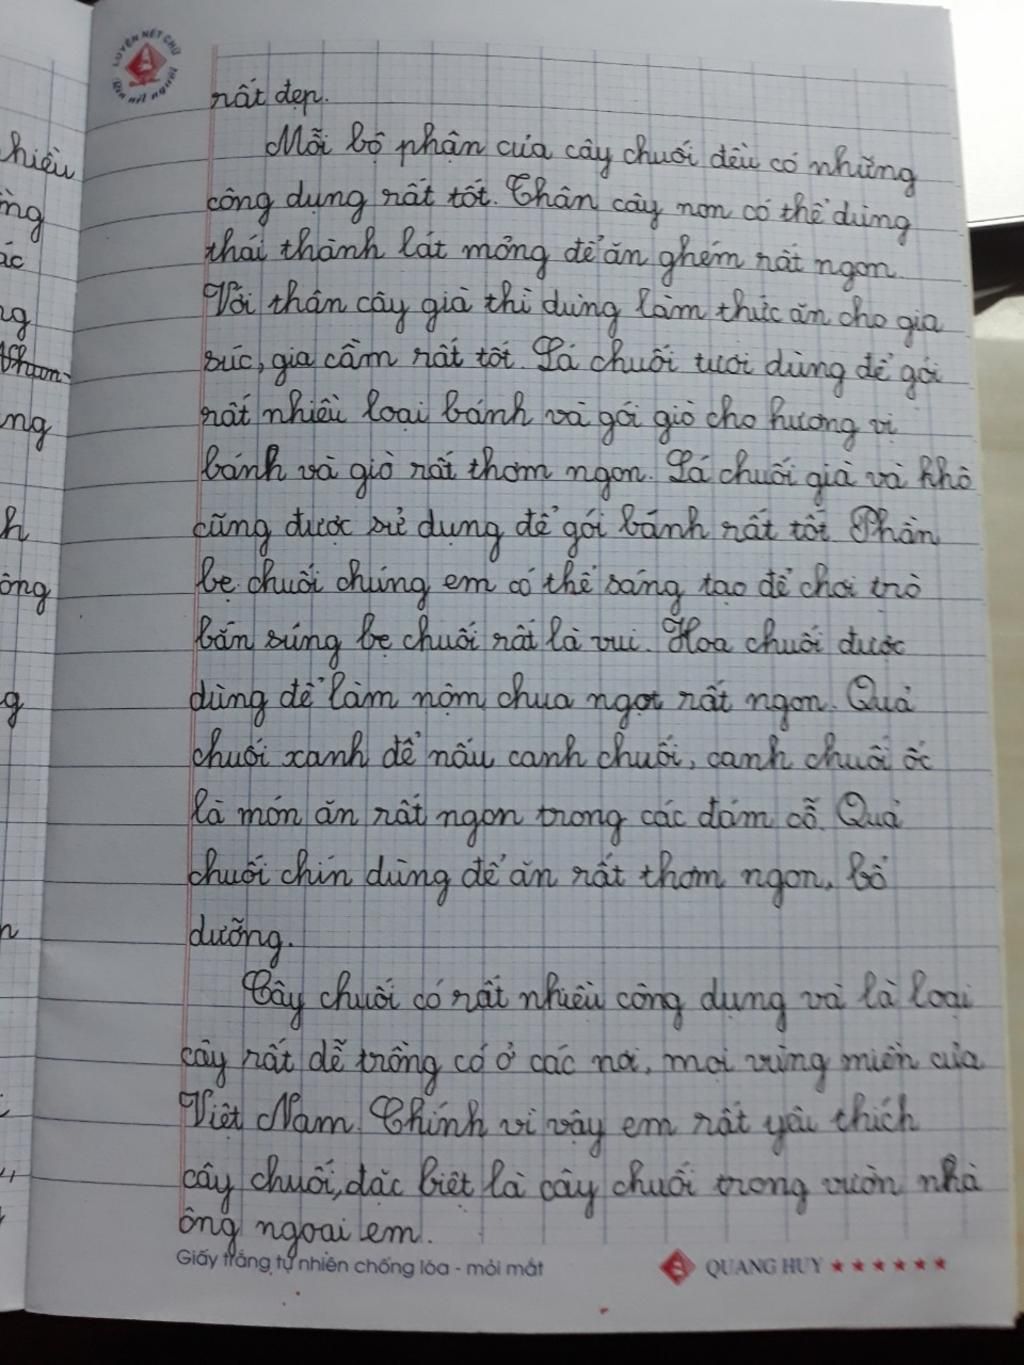 LUYỆN NÉT CHỮ
Rèn nết người
rất đẹp.
Mỗi bộ phận của cây chuối đều có những
công dụng rất tốt. Thân cây non có thể dùng
thái thành lát mỏng để ăn ghém rất ngon.
Với thân cây già thì dùng làm thức ăn cho gia
súc, gia cầm rất tốt. Lá chuối tươi dùng để gói
rất nhiều loại bánh và gói giò cho hương vị
bánh và giò rất thơm ngon. Lá chuối già và khô
cũng được sử dụng để gói bánh rất tốt. Phần
bẹ chuối chúng em có thể sáng tạo để chơi trò
bắn súng bẹ chuối rất là vui. Hoa chuối được
dùng để làm nộm chua ngọt rất ngon. Quả
chuối xanh để nấu canh chuối, canh chuối ốc
là món ăn rất ngon trong các đám cỗ. Quả
chuối chín dùng để ăn rất thơm ngon, bổ
dưỡng.
Cây chuối có rất nhiều công dụng và là loại
cây rất dễ trồng có ở các nơi, mọi vùng miền của
Việt Nam. Chính vì vậy em rất yêu thích
cây chuối, đặc biệt là cây chuối trong vườn nhà
ông ngoại em.
Giấy trắng tự nhiên chống lóa - mỏi mắt
QUANG HUY ★★★★★★